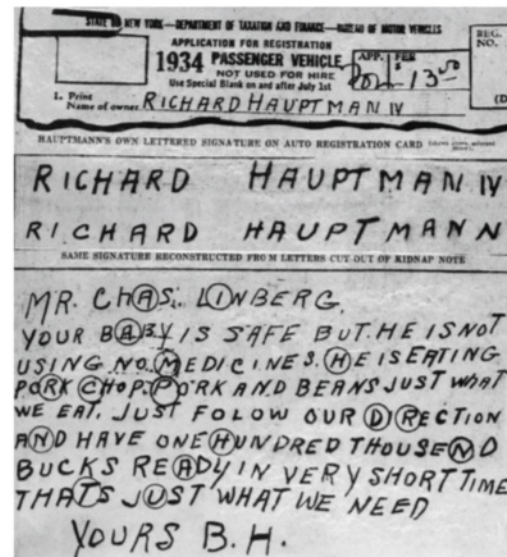 STATE OF NEW YORK—DEPARTMENT OF TAXATION AND FINANCE—BUREAU OF MOTOR VEHICLES
APPLICATION FOR REGISTRATION
1934 PASSENGER VEHICLE
NOT USED FOR HIRE
Use Special Blank on and after July 1st
APP. FEE
$ 13 50
REG.
NO.
1. Print
Name of owner RICHARD HAUPTMANN
(D
HAUPTMANN'S OWN LETTERED SIGNATURE ON AUTO REGISTRATION CARD
RICHARD HAUPTMANN
RICHARD HAUPTMANN
SAME SIGNATURE RECONSTRUCTED FROM LETTERS CUT OUT OF KIDNAP NOTE
MR. CHAS. LINBERG.
YOUR BABY IS SAFE BUT HE IS NOT
USING NO MEDICINES. HE IS EATING
PORK CHOP PORK AND BEANS JUST WHAT
WE EAT. JUST FOLOW OUR DIRECTION
AND HAVE ONE HUNDRED THOUSEND
BUCKS READY IN VERY SHORT TIME
THATS JUST WHAT WE NEED
YOURS B. H.